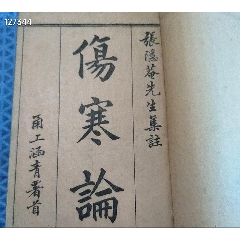 127644
張隱菴先生集註
傷寒論
甬上涵青署首